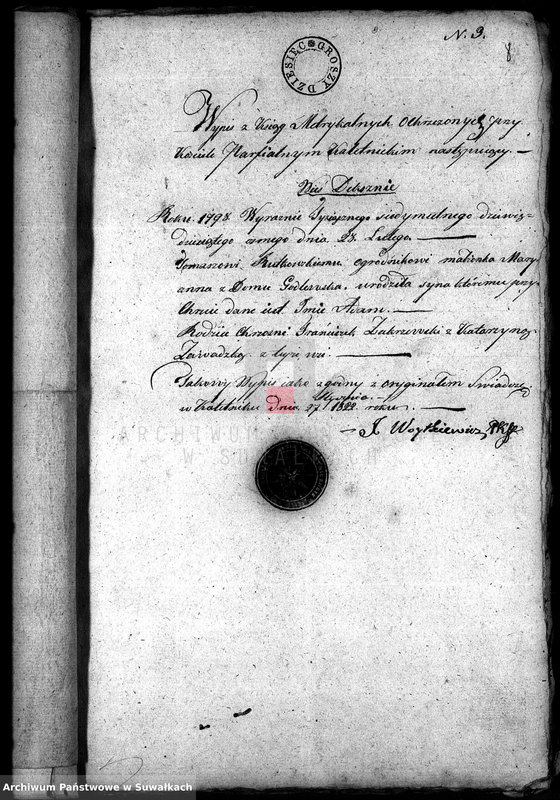 N. 3.
8
DZIESIĘĆ GROSZY
Wypis z Xsiąg Metrykalnych Ochrzczonych przy
Kościele Parfialnym Kaletnickim następuiący. —
Wieś Deksznie
Roku 1798 Wyraznie Tysiącznego siedymsetnego dziewięc
dziesiątego osmego dnia 23 Lutego. —
Tomaszowi Rutkowskiemu ogrodnikowi małżonka Mary
anna z Domu Godlewska, urodziła syna któremu przy
Chrzcie dane iest Imie Adam. —
Rodzice Chrzesni Franciszek Zakrzewski z Katarzyną
Zawadzką z teyże wsi. —
Takowy Wypis iako zgodny z oryginałem Swiadczę
w Kaletniku dnia 27 Stycznia 1822 roku. —
— J. Woytkiewicz
ARCHIWUM
W SUWAŁKACH
Archiwum Państwowe w Suwałkach